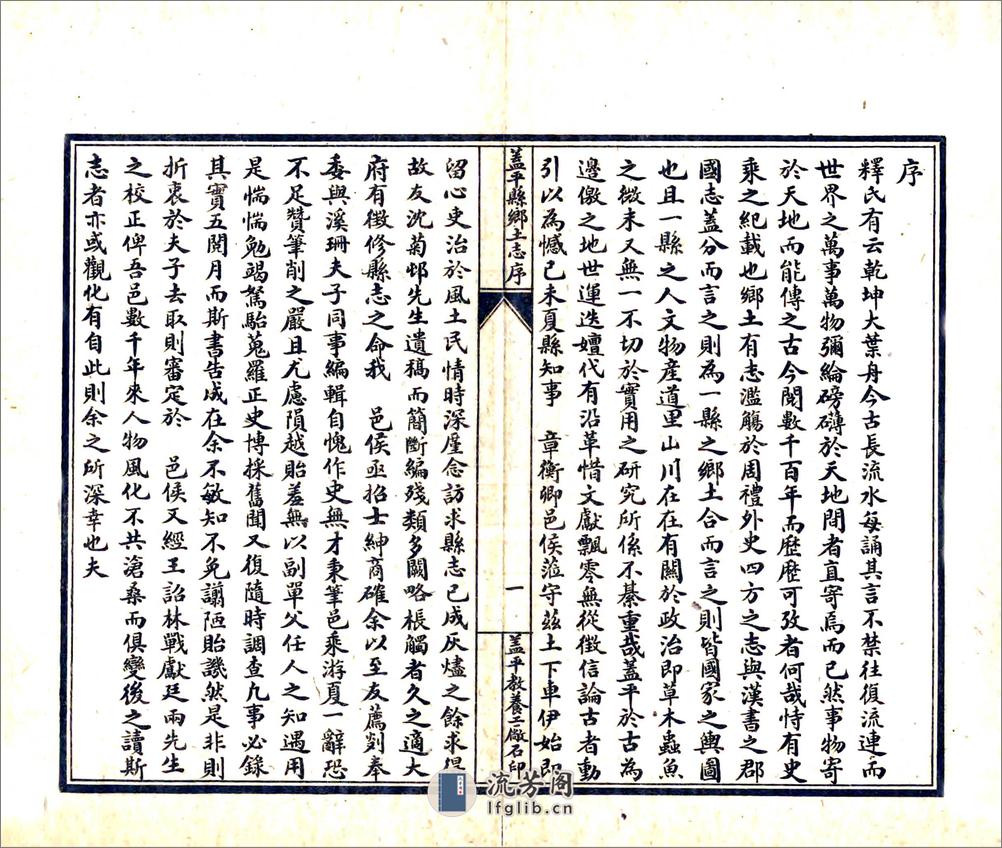 序
釋氏有云乾坤大葉舟今古長流水每誦其言不禁往復流連而
世界之萬事萬物彌綸磅礴於天地間者直寄焉而已然事物寄
於天地而能傳之古今閱數千百年而歷歷可攷者何哉恃有史
乘之紀載也鄉土有志濫觴於周禮外史四方之志與漢書之郡
國志蓋分而言之則為一縣之鄉土合而言之則皆國家之輿圖
也且一縣之人文物產道里山川在在有關於政治即草木蟲魚
之微末又無一不切於實用之研究所係不綦重哉蓋平於古為
邊儌之地世運迭嬗代有沿革惜文獻飄零無從徵信論古者動
引以為憾已未夏縣知事 章衡卿邑侯蒞守茲土下車伊始即
蓋平縣鄉土志序
一
蓋平教養工廠石印
留心吏治於風土民情時深廑念訪求縣志已成灰燼之餘求得
故友沈菊邨先生遺稿而簡斷編殘類多闕略棖觸者久之適大
府有徵修縣志之命我 邑侯亟招士紳商確余以至友薦剡奉
委與溪珊夫子同事編輯自愧作史無才秉筆邑乘游夏一辭恐
不足贊筆削之嚴且尤慮隕越貽羞無以副單父任人之知遇用
是惴惴勉竭駑駘蒐羅正史博採舊聞又復隨時調查凡事必錄
其實五閱月而斯書告成在余不敏知不免譾陋貽譏然是非則
折衷於夫子去取則審定於 邑侯又經王詒林戰獻廷兩先生
之校正俾吾邑數千年來人物風化不共滄桑而俱變後之讀斯
志者亦或觀化有自此則余之所深幸也夫
流芳阁
lfglib.cn